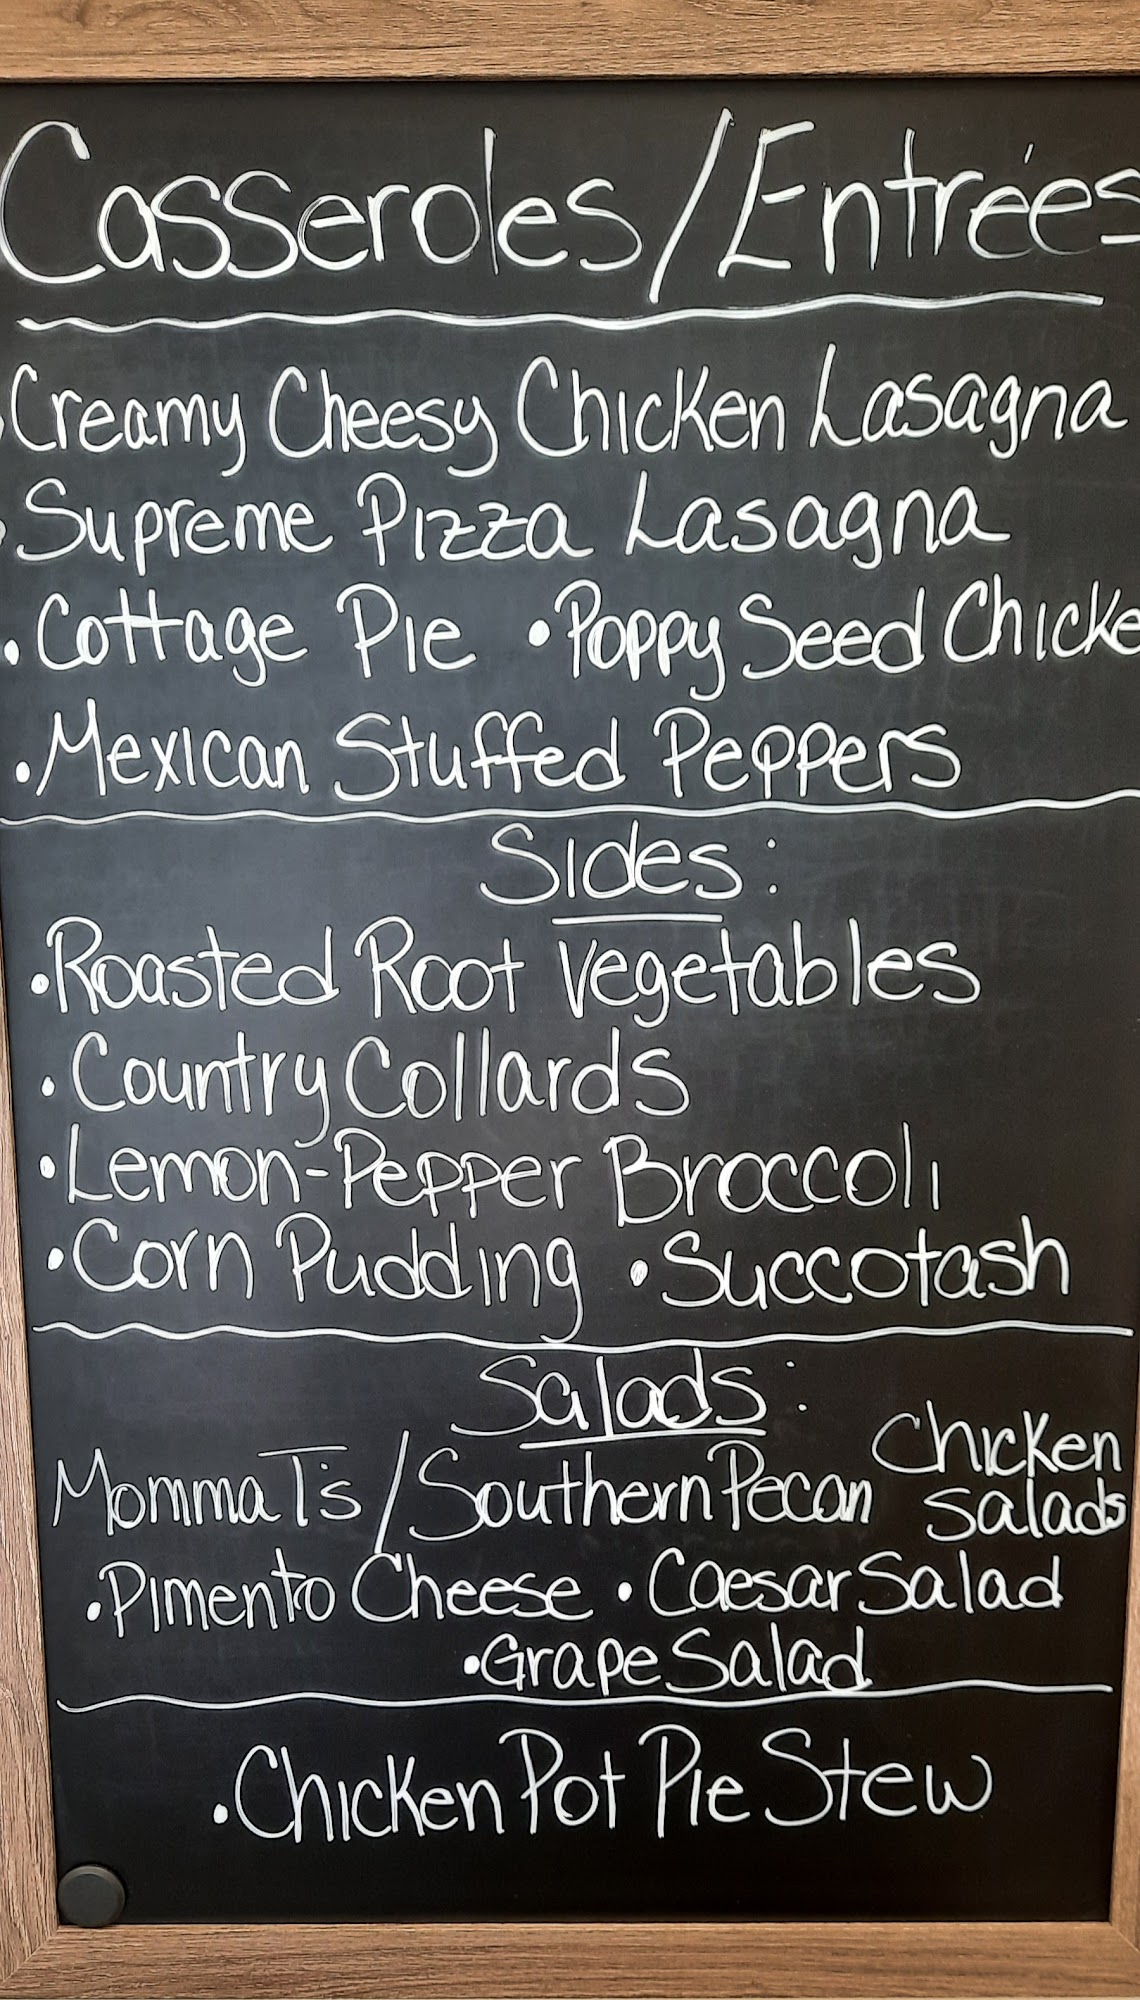 Casseroles/Entrées
Creamy Cheesy Chicken Lasagna
Supreme Pizza Lasagna
• Cottage Pie • Poppy Seed Chicke
• Mexican Stuffed Peppers
Sides:
• Roasted Root Vegetables
• Country Collards
• Lemon-Pepper Broccoli
• Corn Pudding • Succotash
Salads:
Momma T's / Southern Pecan Chicken Salads
• Pimento Cheese • Caesar Salad
• Grape Salad
• Chicken Pot Pie Stew